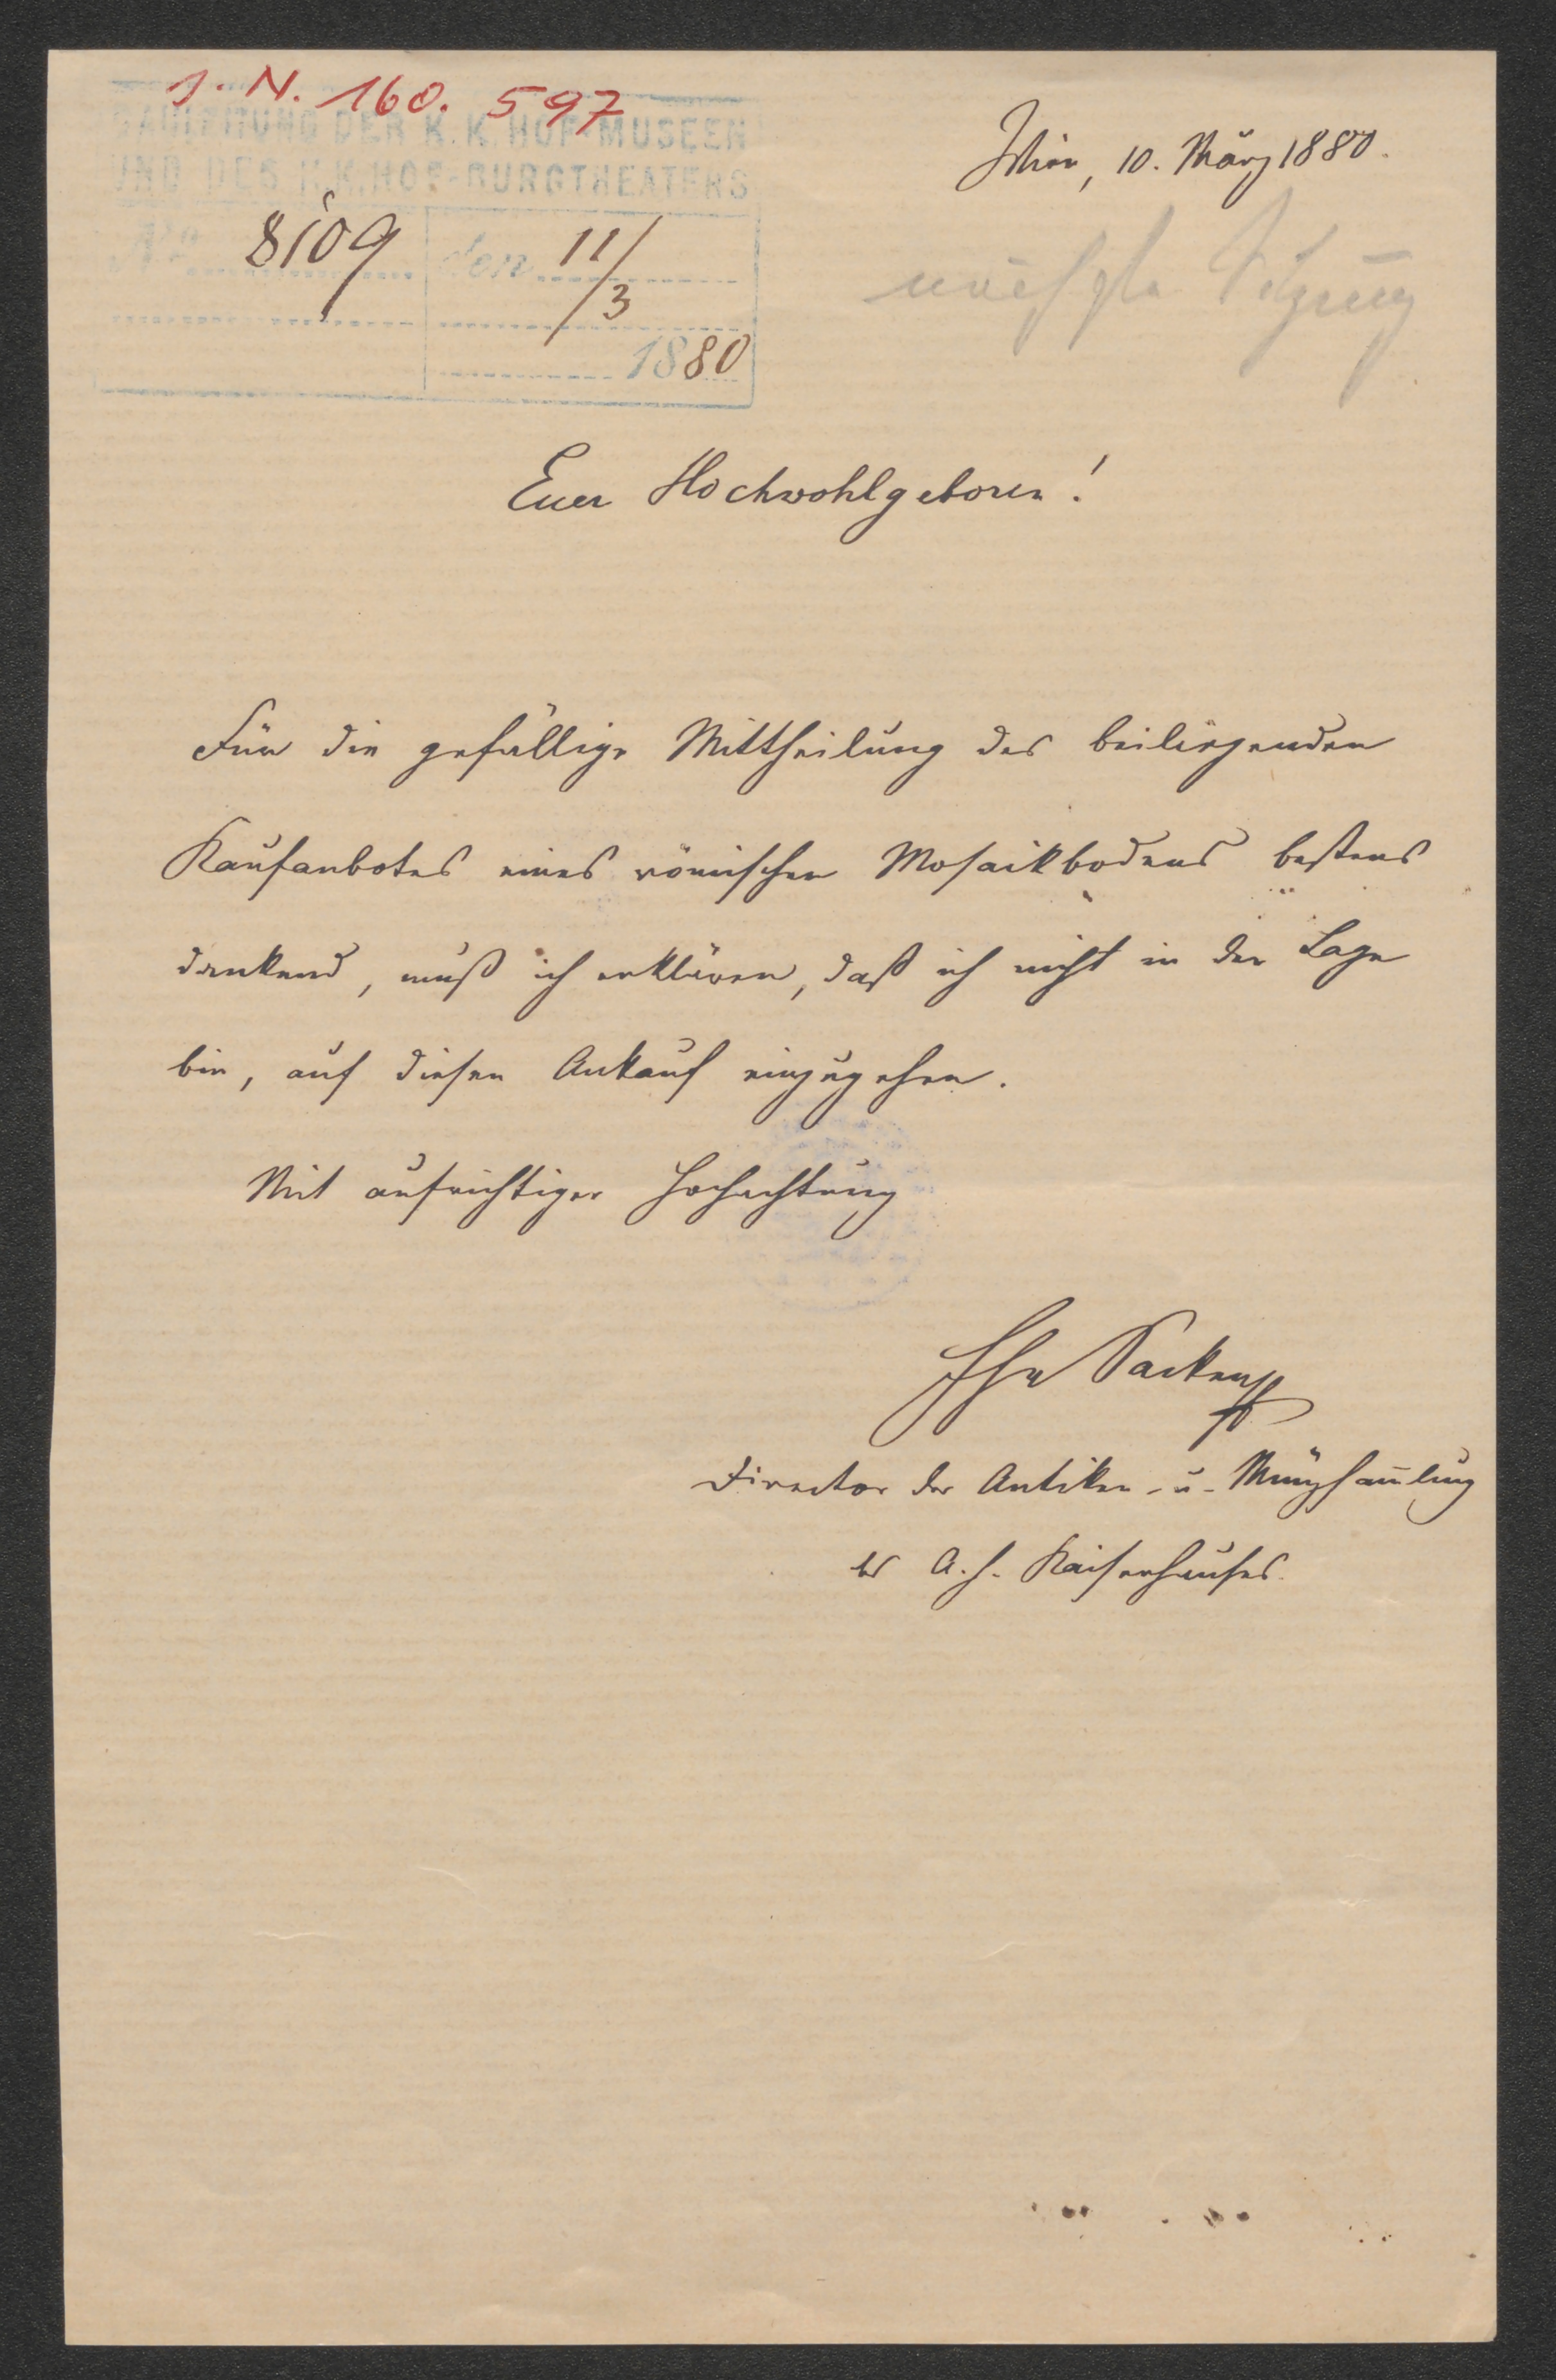 J. N. 160. 597
BAULEITUNG DER K. K. HOF-MUSEEN
UND DES K.K.HOF-BURGTHEATERS
No. 8109 den 11/3
1880
Wien, 10. März 1880.
nächste Sitzung
Euer Hochwohlgeboren!
Für die gefällige Mittheilung des beiliegenden
Kaufanbotes eines römischen Mosaikbodens bestens
dankend, muß ich erklären, daß ich nicht in der Lage
bin, auf diesen Ankauf einzugehen.
Mit aufrichtiger Hochachtung
Fhr Sacken
Director der Antiken- u. Münzsam̅lung
des A. h. Kaiserhauses.